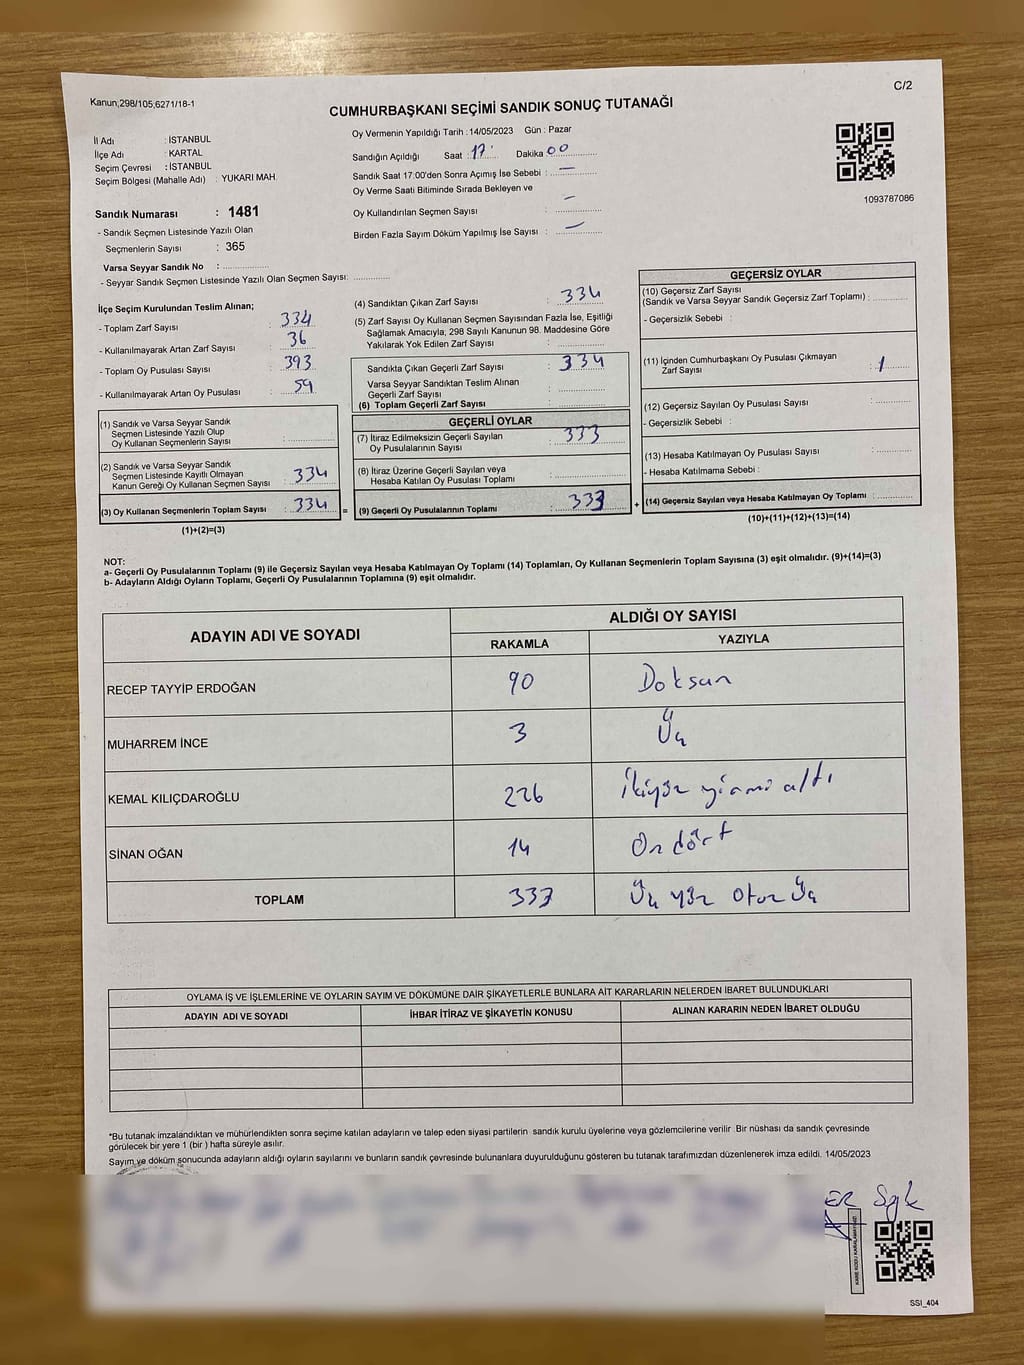 Kanun;298/105;6271/18-1
C/2
CUMHURBAŞKANI SEÇİMİ SANDIK SONUÇ TUTANAĞI
İl Adı : İSTANBUL
İlçe Adı : KARTAL
Seçim Çevresi : İSTANBUL
Seçim Bölgesi (Mahalle Adı) : YUKARI MAH.
Oy Vermenin Yapıldığı Tarih : 14/05/2023 Gün : Pazar
Sandığın Açıldığı Saat : 17 Dakika : 00
Sandık Saat 17:00'den Sonra Açımış İse Sebebi : —
Oy Verme Saati Bitiminde Sırada Bekleyen ve
Oy Kullandırılan Seçmen Sayısı : —
Birden Fazla Sayım Döküm Yapılmış İse Sayısı : —
1093787086
Sandık Numarası : 1481
- Sandık Seçmen Listesinde Yazılı Olan
Seçmenlerin Sayısı : 365
Varsa Seyyar Sandık No :
- Seyyar Sandık Seçmen Listesinde Yazılı Olan Seçmen Sayısı:
İlçe Seçim Kurulundan Teslim Alınan;
- Toplam Zarf Sayısı : 334
- Kullanılmayarak Artan Zarf Sayısı : 36
- Toplam Oy Pusulası Sayısı : 393
- Kullanılmayarak Artan Oy Pusulası : 59
(1) Sandık ve Varsa Seyyar Sandık
Seçmen Listesinde Yazılı Olup
Oy Kullanan Seçmenlerin Sayısı :
(2) Sandık ve Varsa Seyyar Sandık
Seçmen Listesinde Kayıtlı Olmayan
Kanun Gereği Oy Kullanan Seçmen Sayısı : 334
(3) Oy Kullanan Seçmenlerin Toplam Sayısı : 334 =
(1)+(2)=(3)
(4) Sandıktan Çıkan Zarf Sayısı : 334
(5) Zarf Sayısı Oy Kullanan Seçmen Sayısından Fazla İse, Eşitliği
Sağlamak Amacıyla, 298 Sayılı Kanunun 98. Maddesine Göre
Yakılarak Yok Edilen Zarf Sayısı :
Sandıkta Çıkan Geçerli Zarf Sayısı : 334
Varsa Seyyar Sandıktan Teslim Alınan
Geçerli Zarf Sayısı :
(6) Toplam Geçerli Zarf Sayısı :
GEÇERLİ OYLAR
(7) İtiraz Edilmeksizin Geçerli Sayılan
Oy Pusulalarının Sayısı : 333
(8) İtiraz Üzerine Geçerli Sayılan veya
Hesaba Katılan Oy Pusulası Toplamı :
(9) Geçerli Oy Pusulalarının Toplamı : 333 +
GEÇERSİZ OYLAR
(10) Geçersiz Zarf Sayısı
(Sandık ve Varsa Seyyar Sandık Geçersiz Zarf Toplamı) :
- Geçersizlik Sebebi :
(11) İçinden Cumhurbaşkanı Oy Pusulası Çıkmayan
Zarf Sayısı : 1
(12) Geçersiz Sayılan Oy Pusulası Sayısı :
- Geçersizlik Sebebi :
(13) Hesaba Katılmayan Oy Pusulası Sayısı :
- Hesaba Katılmama Sebebi :
(14) Geçersiz Sayılan veya Hesaba Katılmayan Oy Toplamı :
(10)+(11)+(12)+(13)=(14)
NOT:
a- Geçerli Oy Pusulalarının Toplamı (9) ile Geçersiz Sayılan veya Hesaba Katılmayan Oy Toplamı (14) Toplamları, Oy Kullanan Seçmenlerin Toplam Sayısına (3) eşit olmalıdır. (9)+(14)=(3)
b- Adayların Aldığı Oyların Toplamı, Geçerli Oy Pusulalarının Toplamına (9) eşit olmalıdır.
ADAYIN ADI VE SOYADI
ALDIĞI OY SAYISI
RAKAMLA YAZIYLA
RECEP TAYYİP ERDOĞAN 90 Doksan
MUHARREM İNCE 3 Üç
KEMAL KILIÇDAROĞLU 226 İkiyüz yirmi altı
SİNAN OĞAN 14 On dört
TOPLAM 333 Üç yüz otuz Üç
OYLAMA İŞ VE İŞLEMLERİNE VE OYLARIN SAYIM VE DÖKÜMÜNE DAİR ŞİKAYETLERLE BUNLARA AİT KARARLARIN NELERDEN İBARET BULUNDUKLARI
ADAYIN ADI VE SOYADI İHBAR İTİRAZ VE ŞİKAYETİN KONUSU ALINAN KARARIN NEDEN İBARET OLDUĞU
*Bu tutanak imzalandıktan ve mühürlendikten sonra seçime katılan adayların ve talep eden siyasi partilerin sandık kurulu üyelerine veya gözlemcilerine verilir. Bir nüshası da sandık çevresinde
görülecek bir yere 1 (bir ) hafta süreyle asılır.
Sayım ve döküm sonucunda adayların aldığı oyların sayılarını ve bunların sandık çevresinde bulunanlara duyurulduğunu gösteren bu tutanak tarafımızdan düzenlenerek imza edildi. 14/05/2023
ER
KARE KODU KARALAMAYINIZ!
SSI_404